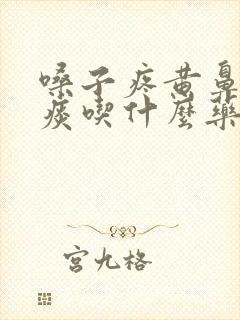 嗓子疼黄鼻
痰喫什麼藥
宫九格